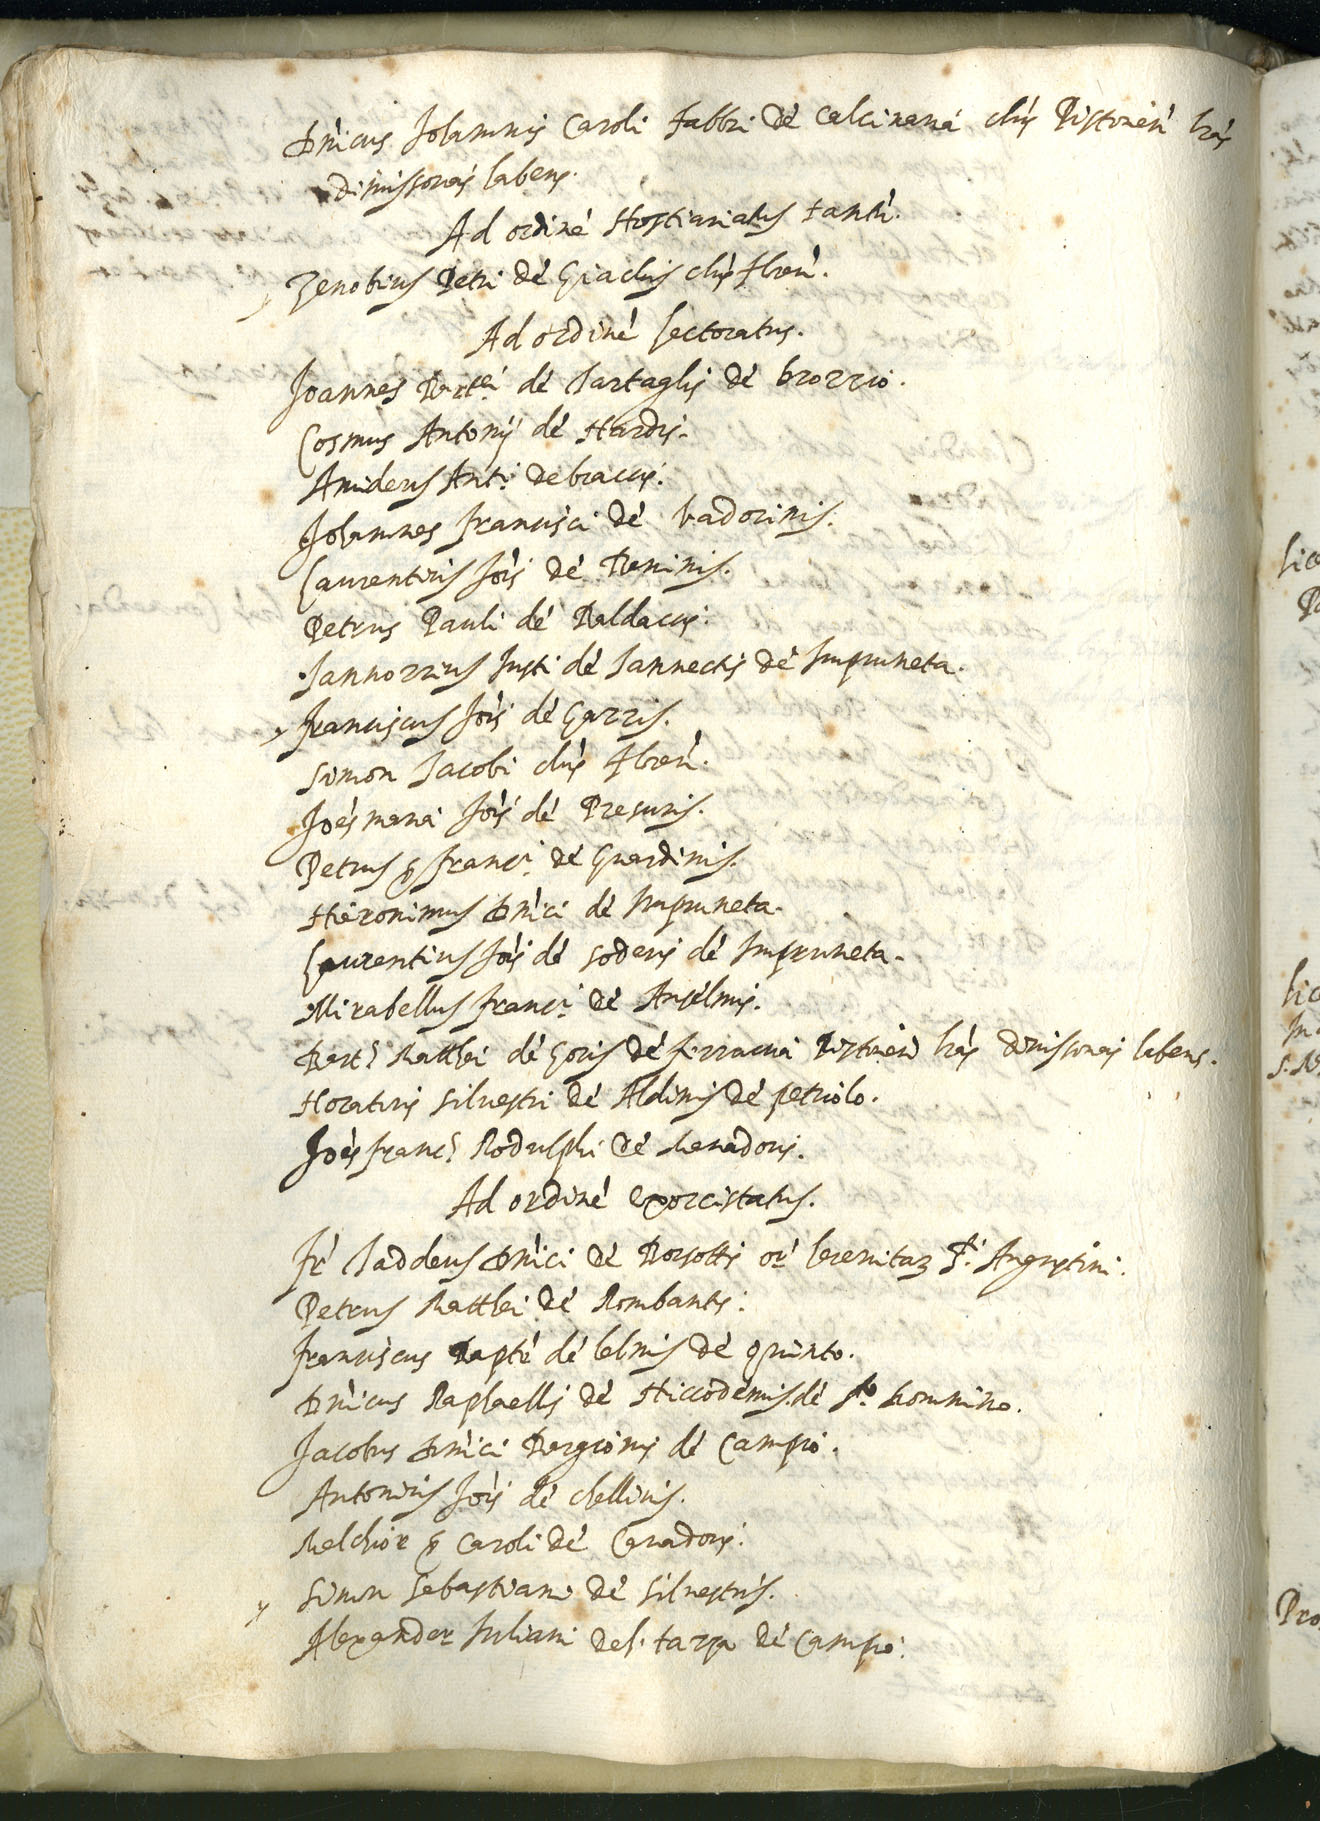 Dnicus Johannis Caroli Fabbri de Calcinaria clus Pistorien lras
dimissorias habens.
Ad ordine Hostiariatus tantu.
Zenobius Petri de Giachis clus floren.
Ad ordine lectoratus.
Joannes de Tartaglis de brozzio.
Cosmus Antonij de Nardis.
Amideus Anti. de braccis.
Johannes Francisci de vadorinis.
Laurentius Jois de Meninis.
Petrus Pauli de Baldaccis.
Vannozzius Justi de Vannectis de Impruneta.
Franciscus Jois de Gazzis.
Simon Jacobi clus floren.
Joes maria Jois de Presuris.
Petrus q Franci. de Guardinis.
Hieronimus Dnici de Impruneta.
Laurentius Jois de soderis de Impruneta.
Mirabellus Franci. de Anselmis.
Matthei de Goris de Pistorien lras dimissorias habens.
Horatius Silvestri de Aldinis de petriolo.
Joes franc. Rodulphi de
Ad ordine exorcistatus.
Fr Taddeus Dnici de or heremitar S. Augustini.
Petrus Matthei de Rombantis.
Franciscus Bapte de lelmis de quinto.
Dnicus Raphaelli de Niccodemis. de
Jacobus Dnici de Campio.
Antonius Jois de chellinis.
Melchior q Caroli de
Simon Sebastiani de Silvestris.
Alexander Juliani del. tazza de Campio.
lice
lic
Pro